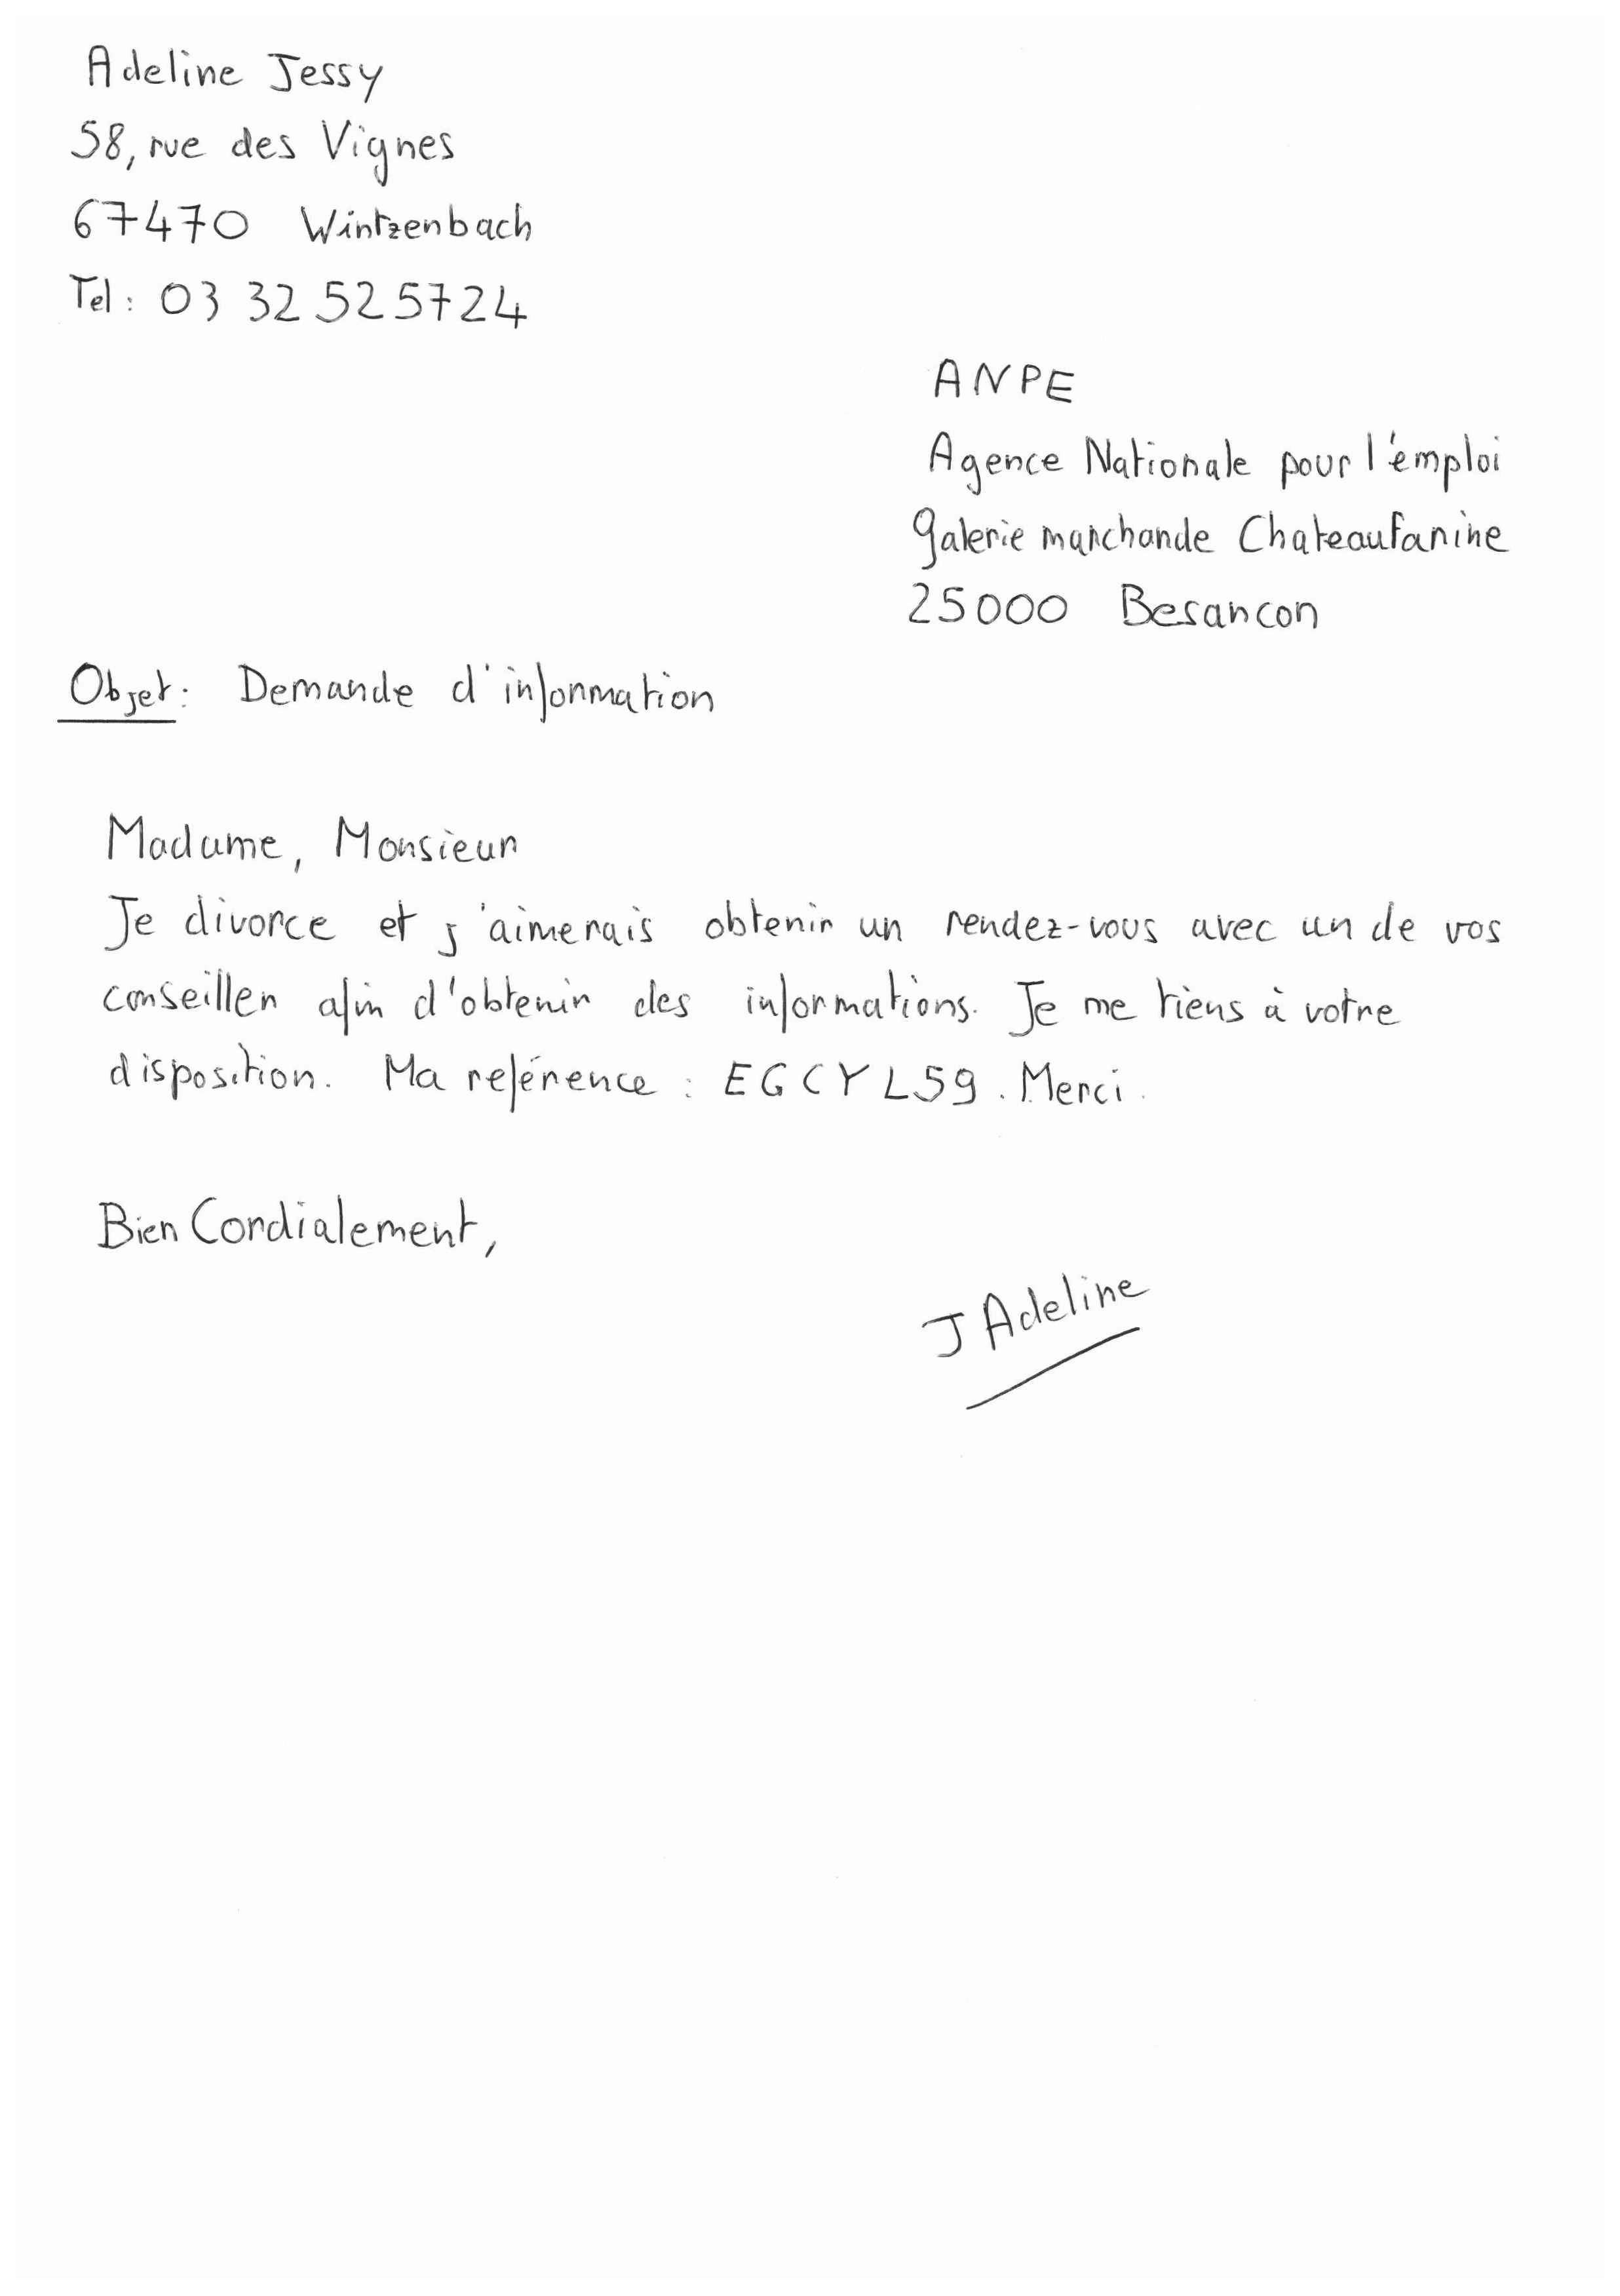 Adeline Jessy
58, rue des Vignes
67470 Wintzenbach
Tel : 03 32 52 57 24
ANPE
Agence Nationale pour l'émploi
galerie marchande Chateaufarine
25000 Besancon
Objet : Demande d'information
Madame, Monsieur
Je divorce et j'aimerais obtenir un rendez-vous avec un de vos
conseiller afin d'obtenir des informations. Je me tiens à votre
disposition. Ma reférence : EGCYL59. Merci.
Bien Cordialement,
J Adeline